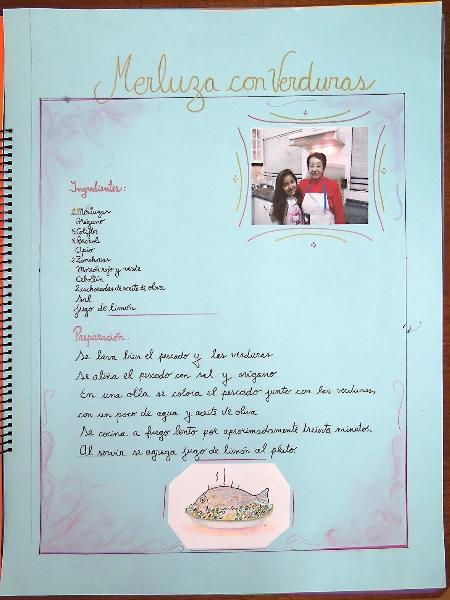 Merluza con Verduras
Ingredientes:
2 Merluzas
Orégano
Coliflor
Brócoli
Apio
2 Zanahorias
Morrón rojo y verde
Cebollín
2 cucharadas de aceite de oliva
Sal
jugo de limón
Preparación:
Se lava bien el pescado y las verduras
Se aliña el pescado con sal y orégano
En una olla se coloca el pescado junto con las verduras,
con un poco de agua y aceite de oliva
Se cocina a fuego lento por aproximadamente treinta minutos.
Al servir se agrega jugo de limón al plato.